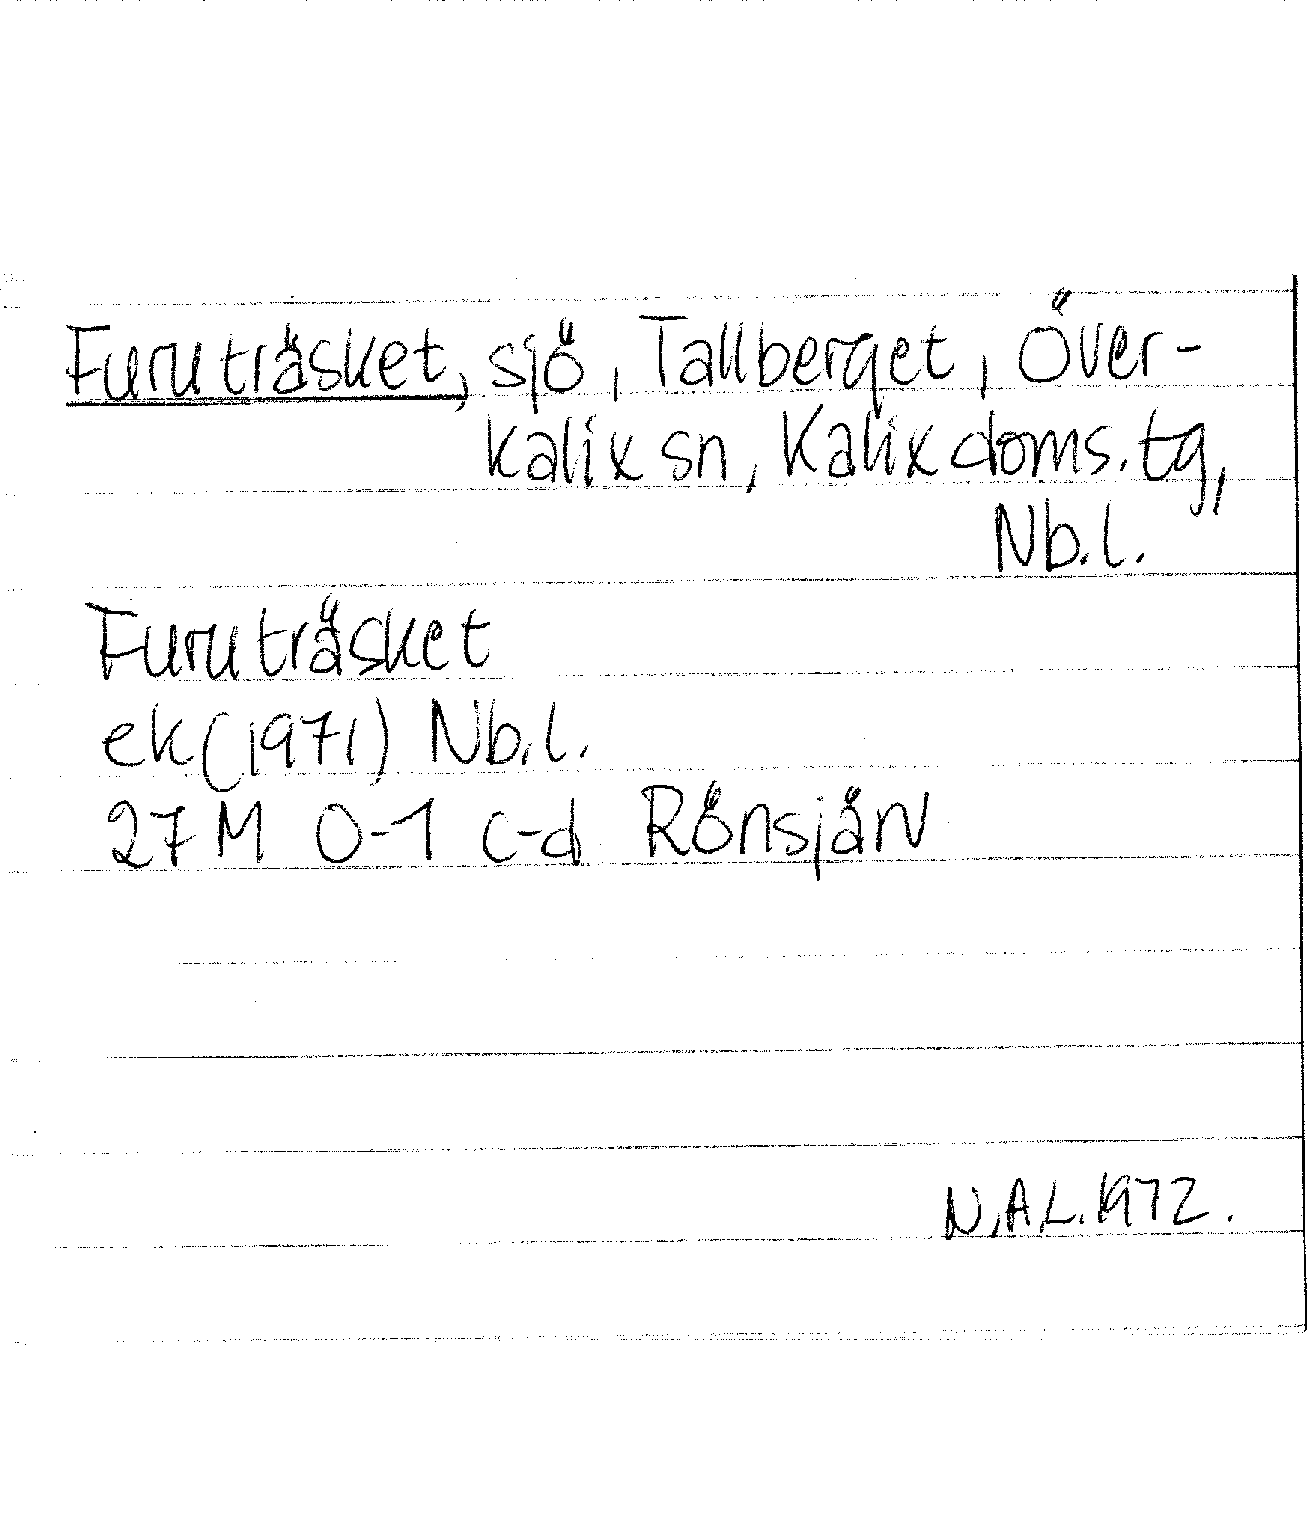 Furuträsket, sjö, Tallberget, Över-
kalix sn, Kalix doms.tg,
Nb.l.
Furuträsket
ek (1971) Nb.l.
27 M 0-1 c-d Rönsjärv
N.A.L. 1972.